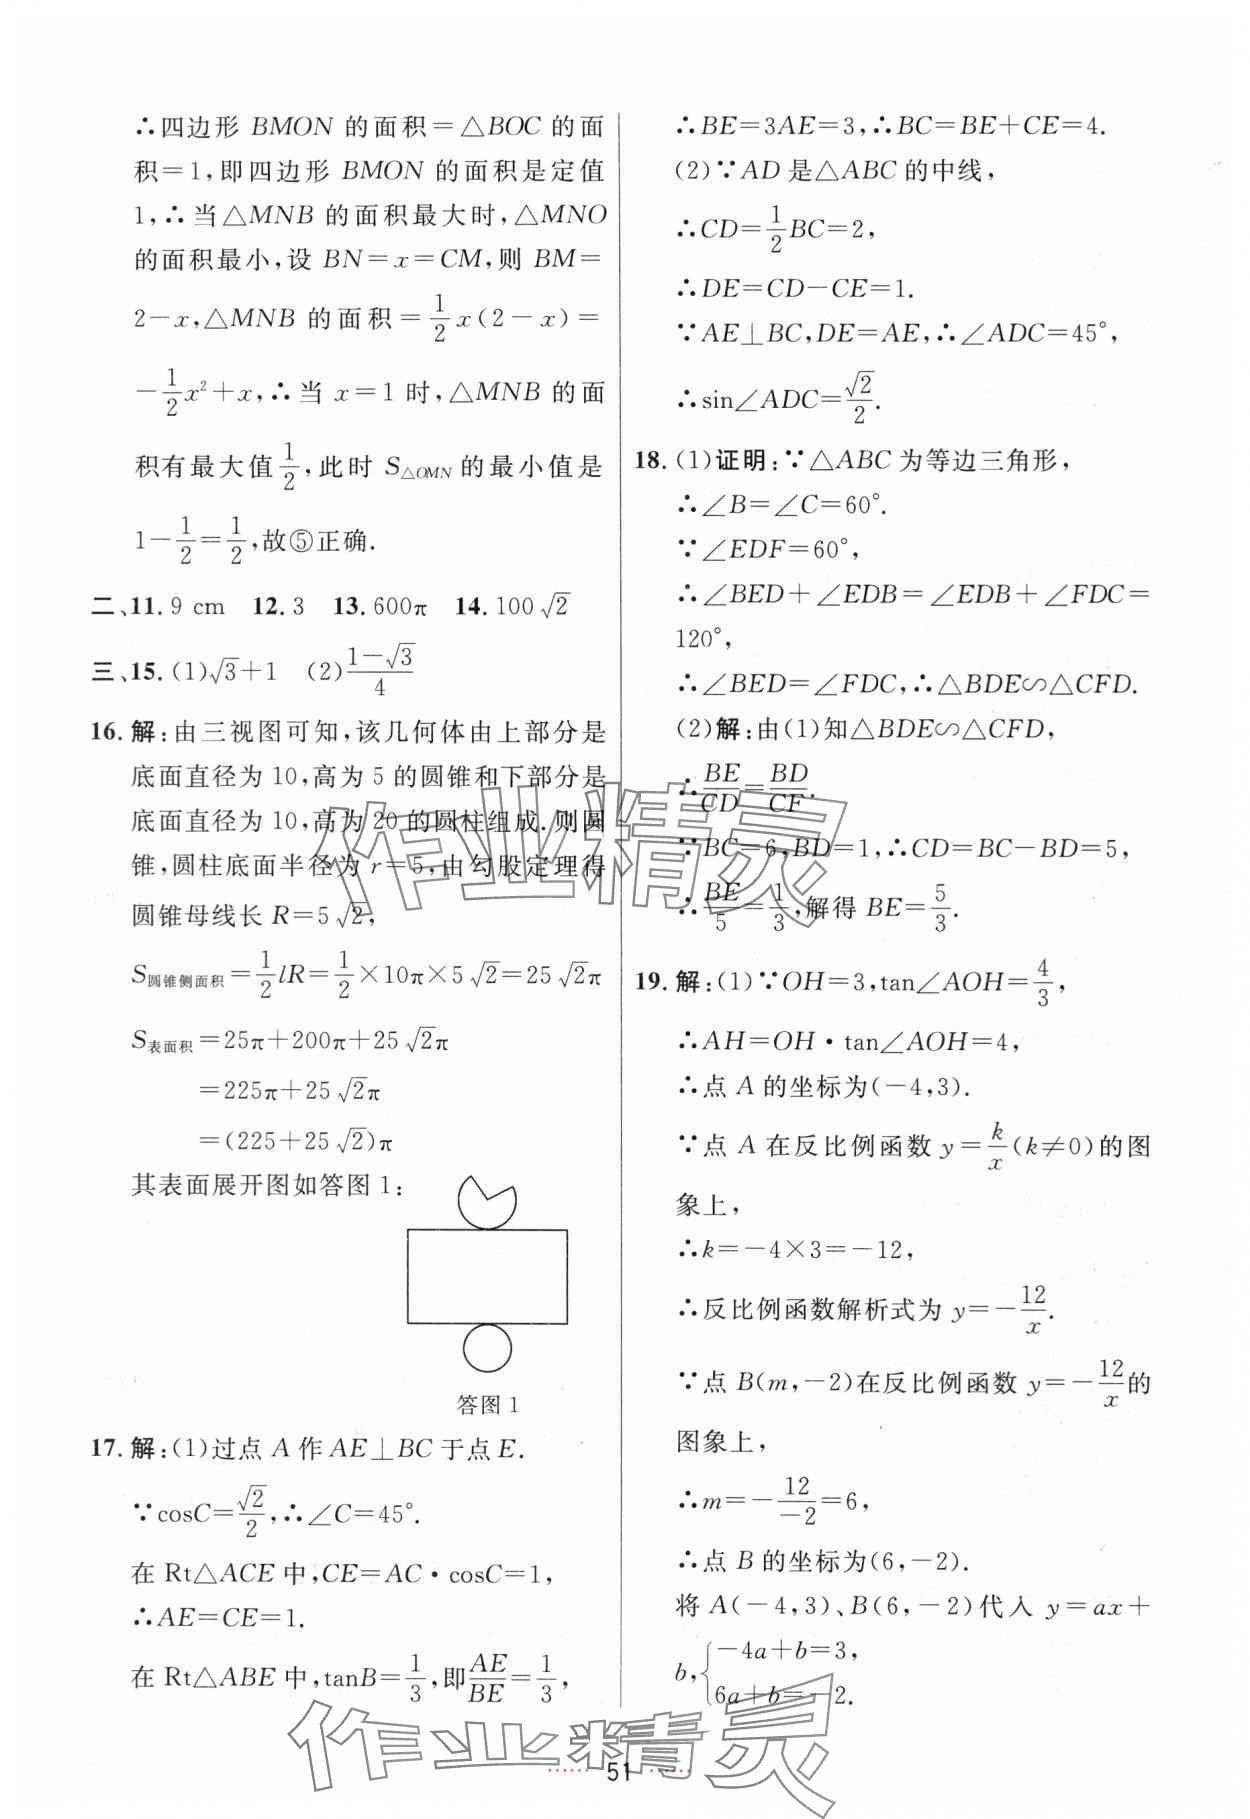 ∴四边形 BMON 的面积=△BOC 的面
积=1,即四边形 BMON 的面积是定值
1,∴当△MNB 的面积最大时,△MNO
的面积最小,设 BN=x=CM,则 BM=
2-x,△MNB 的面积=\frac{1}{2}x(2-x)=
-\frac{1}{2}x²+x,∴当 x=1 时,△MNB 的面
积有最大值\frac{1}{2},此时 S△OMN 的最小值是
1-\frac{1}{2}=\frac{1}{2},故⑤正确.
二、11.9 cm 12.3 13.600π 14.100√2
三、15.(1)√3+1 (2)\frac{1-√3}{4}
16.解:由三视图可知,该几何体由上部分是
底面直径为 10,高为 5 的圆锥和下部分是
底面直径为 10,高为 20 的圆柱组成.则圆
锥,圆柱底面半径为 r=5,由勾股定理得
圆锥母线长 R=5√2,
S圆锥侧面积=\frac{1}{2}lR=\frac{1}{2}×10π×5√2=25√2π
S表面积=25π+200π+25√2π
=225π+25√2π
=(225+25√2)π
其表面展开图如答图 1:
答图 1
17.解:(1)过点 A 作 AE⊥BC 于点 E.
∵cosC=\frac{√2}{2},∴∠C=45°.
在 Rt△ACE 中,CE=AC·cosC=1,
∴AE=CE=1.
在 Rt△ABE 中,tanB=\frac{1}{3},即\frac{AE}{BE}=\frac{1}{3},
∴BE=3AE=3,∴BC=BE+CE=4.
(2)∵AD 是△ABC 的中线,
∴CD=\frac{1}{2}BC=2,
∴DE=CD-CE=1.
∵AE⊥BC,DE=AE,∴∠ADC=45°,
∴sin∠ADC=\frac{√2}{2}.
18.(1)证明:∵△ABC 为等边三角形,
∴∠B=∠C=60°.
∵∠EDF=60°,
∴∠BED+∠EDB=∠EDB+∠FDC=
120°,
∴∠BED=∠FDC,∴△BDE∽△CFD.
(2)解:由(1)知△BDE∽△CFD,
∴\frac{BE}{CD}=\frac{BD}{CF}.
∵BC=6,BD=1,∴CD=BC-BD=5,
∴\frac{BE}{5}=\frac{1}{3},解得 BE=\frac{5}{3}.
19.解:(1)∵OH=3,tan∠AOH=\frac{4}{3},
∴AH=OH·tan∠AOH=4,
∴点 A 的坐标为(-4,3).
∵点 A 在反比例函数 y=\frac{k}{x}(k≠0)的图
象上,
∴k=-4×3=-12,
∴反比例函数解析式为 y=-\frac{12}{x}.
∵点 B(m,-2)在反比例函数 y=-\frac{12}{x}的
图象上,
∴m=-\frac{12}{-2}=6,
∴点 B 的坐标为(6,-2).
将 A(-4,3)、B(6,-2)代入 y=ax+
b,{-4a+b=3,
6a+b=-2.
51
作业精灵
作业精灵